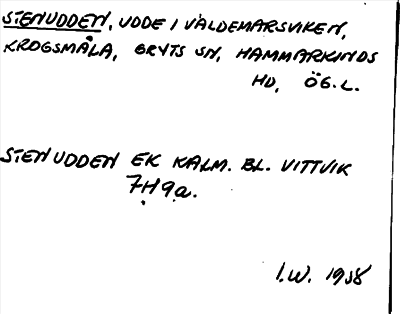 STENUDDEN, UDDE I VALDEMARSVIKEN,
KROGSMÅLA, GRYTS SN, HAMMARKINDS
HD, ÖG.L.
STENUDDEN EK KALM. BL. VITTVIK
7H9a.
I.W. 1958